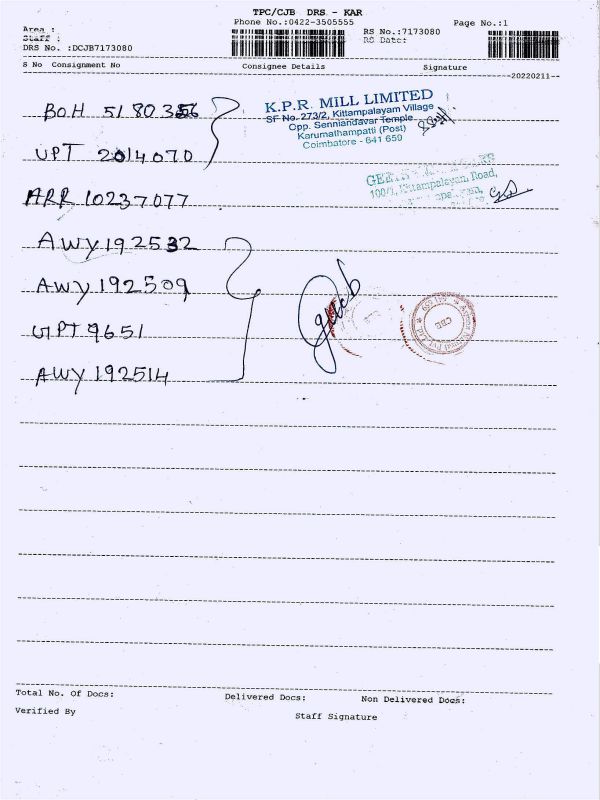 TPC/CJB DRS - KAR
Phone No.:0422-3505555
Page No.:1
Area :
Staff :
RS No.:7173080
RS Date:
DRS No. :DCJB7173080
S No Consignment No Consignee Details Signature
20220211
BOH 5180356
K.P.R. MILL LIMITED
SF No. 273/2, Kittampalayam Village
Opp. Senniandavar Temple
Karumathampatti (Post)
Coimbatore - 641 659
UPT 2014070
100/1, Kittampalayam Road,
ARR 10237077
AWY 192532
AWY 192509
UPT 9651
AWY 192514
CBE
Total No. Of Docs: Delivered Docs: Non Delivered Docs:
Verified By Staff Signature